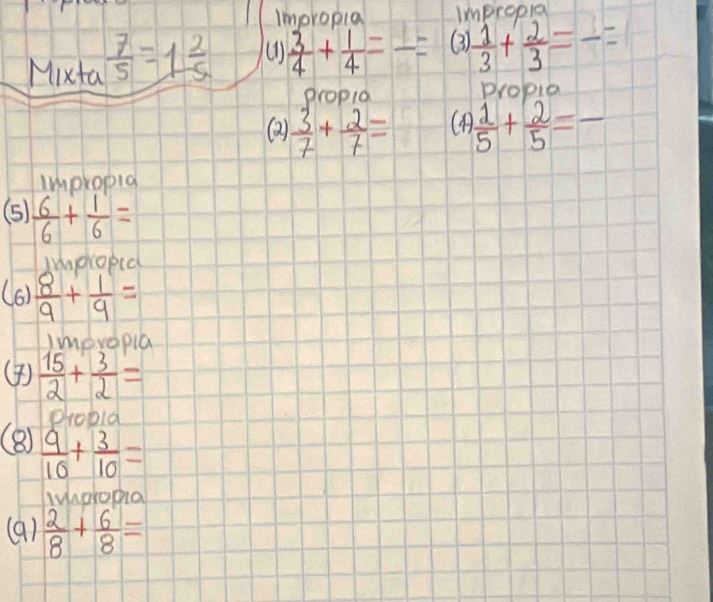 Mixta 7/5 = 1 2/5
impropia
(1) 3/4 + 1/4 = — =
impropia
(3) 1/3 + 2/3 = — =
propia
(2) 3/7 + 2/7 =
propia
(4) 1/5 + 2/5 = —
impropia
(5) 6/6 + 1/6 =
impropia
(6) 8/9 + 1/9 =
impropia
(7) 15/2 + 3/2 =
propia
(8) 9/10 + 3/10 =
impropia
(9) 2/8 + 6/8 =